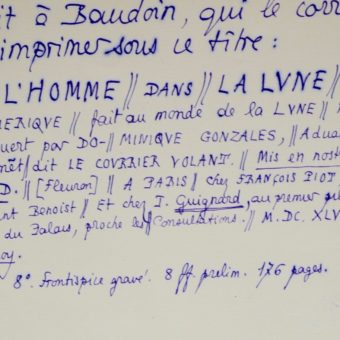 it à Baudoin, qui le corr
imprimer sous ce titre :
L'HOMME // DANS // LA LVNE //
MERIQVE // fait au monde de la LVNE //
uert par DO- // MINIQVE GONZALES, // Adua
nêt // dit LE COVRRIER VOLANT. // Mis en nost
D. // [Fleuron] // A PARIS // chez FRANÇOIS PIOT
nt Benoist // Et chez J. Guignard, au premier pi
du Palais, proche les // Consultations. // M.DC.XLV
oy.
8°. Frontispice gravé. 8 ff. prelim. 176 pages.